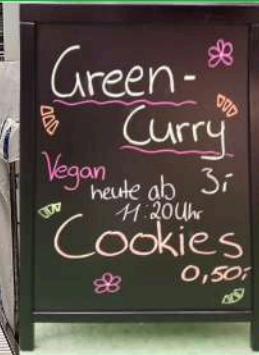 Green-
Curry
Vegan 3,-
heute ab
11:20 Uhr
Cookies
0,50,-